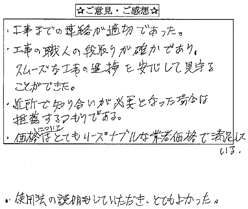 ☆ご意見・ご感想☆
・工事までの連絡が適切であった。
・工事の職人の段取りが確かであり、
スムーズな工事の進捗を安心して見守る
ことができた。
・近所で知り合いが必要となった場合は
推薦するつもりである。
・価格についてはとてもリーズナブルな業者価格で満足して
いる。
・使用法の説明もしていただき、とてもよかった。